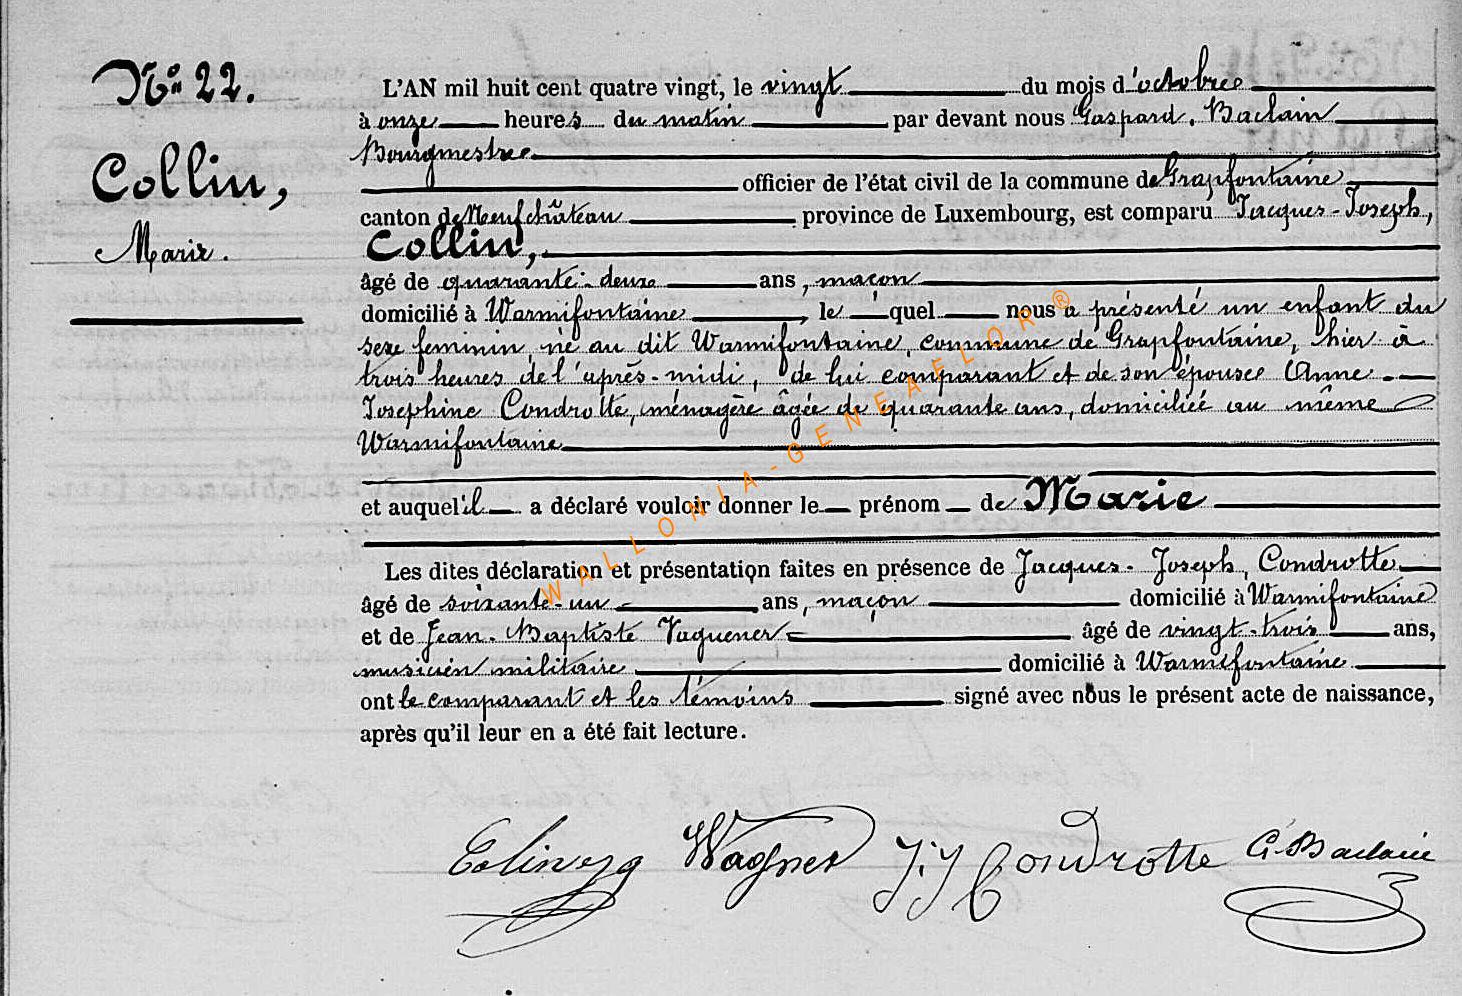 No 22.
Collin,
Marie.
L'AN mil huit cent quatre vingt, le vingt du mois d'octobre
à onze heures du matin par devant nous Gaspard. Baclain
Bourgmestre
officier de l'état civil de la commune de Grapfontaine
canton de Neufchâteau province de Luxembourg, est comparu Jacques-Joseph,
Collin,
âgé de quarante-deux ans, maçon
domicilié à Warmifontaine, le quel nous a présenté un enfant du
sexe feminin, né au dit Warmifontaine, commune de Grapfontaine, hier à
trois heures de l'après-midi, de lui comparant et de son épouse Anne-
Josephine Condrotte, ménagère âgée de quarante ans, domiciliée au même
Warmifontaine
et auquel il a déclaré vouloir donner le prénom de Marie
Les dites déclaration et présentation faites en présence de Jacques-Joseph, Condrotte
âgé de soixante-un ans, maçon domicilié à Warmifontaine
et de Jean-Baptiste Vaguener âgé de vingt-trois ans,
musicien militaire domicilié à Warmifontaine
ont le comparant et les témoins signé avec nous le présent acte de naissance,
après qu'il leur en a été fait lecture.
Wagner J.J Condrotte G. Baclain
WALLONIA-GENEAELOR®